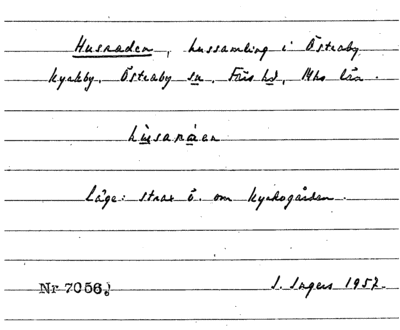 Husraden, hussamling i Östraby
kyrkby. Östraby sn. Färs hd, Mhs län.
Läge: strax ö. om kyrkogården.
Nr 7056, S. Ingers 1957